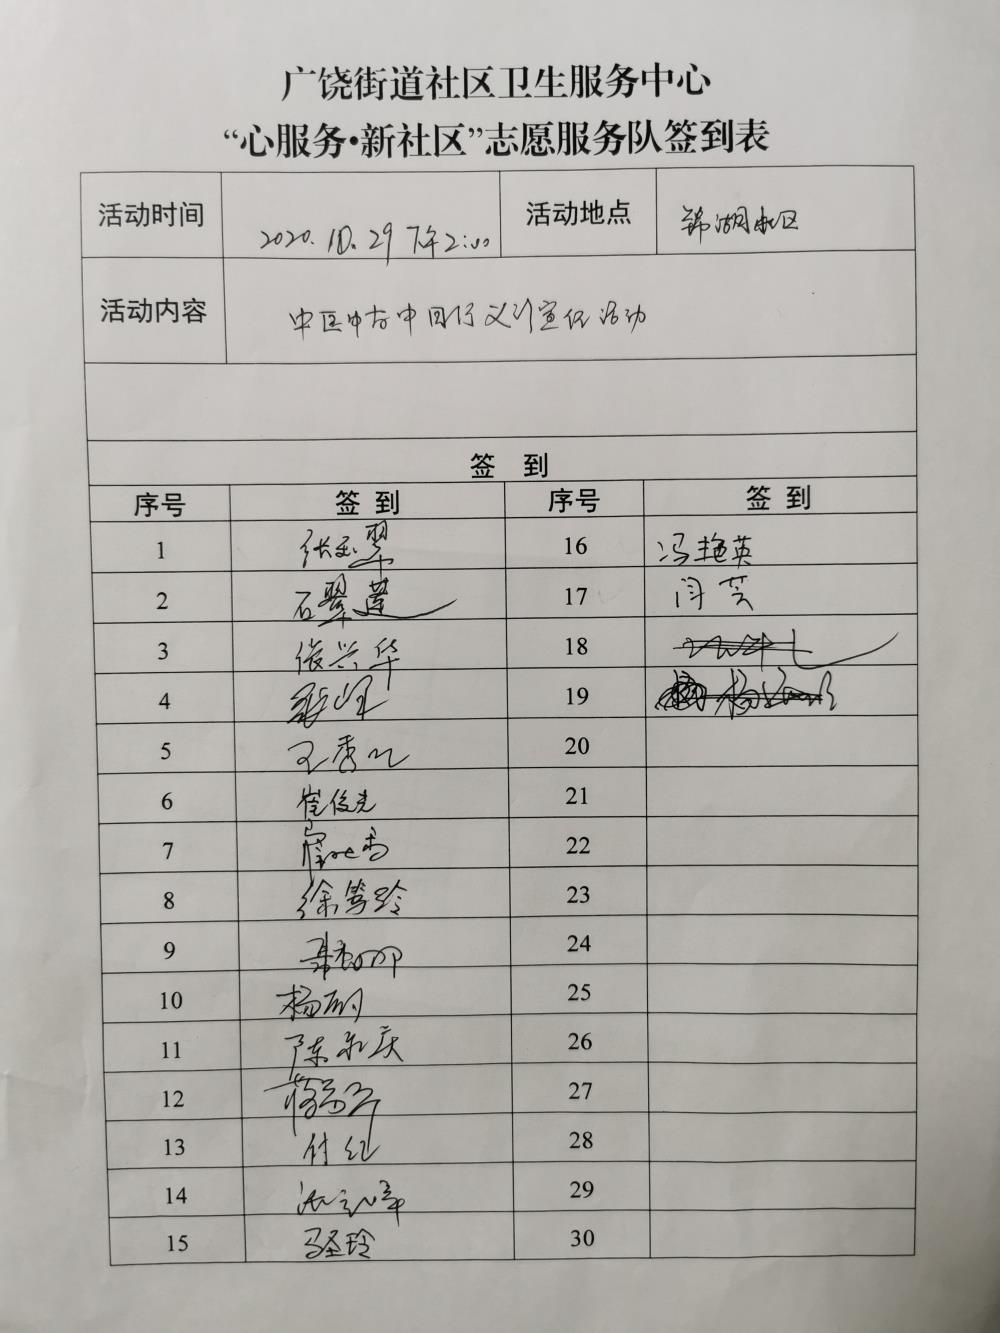 广饶街道社区卫生服务中心
“心服务•新社区”志愿服务队签到表
活动时间 2020.10.29 下午2:00 活动地点 锦湖社区
活动内容 中医中药中国行义诊宣传活动
签 到
序号 签 到 序号 签 到
1 张玉翠 16 冯艳英
2 石翠莲 17 闫芸
3 张兴华 18
4 19
5 王秀儿 20
6 崔俊光 21
7 22
8 徐莺玲 23
9 24
10 杨丽 25
11 陈永庆 26
12 27
13 付红 28
14 29
15 马圣玲 30